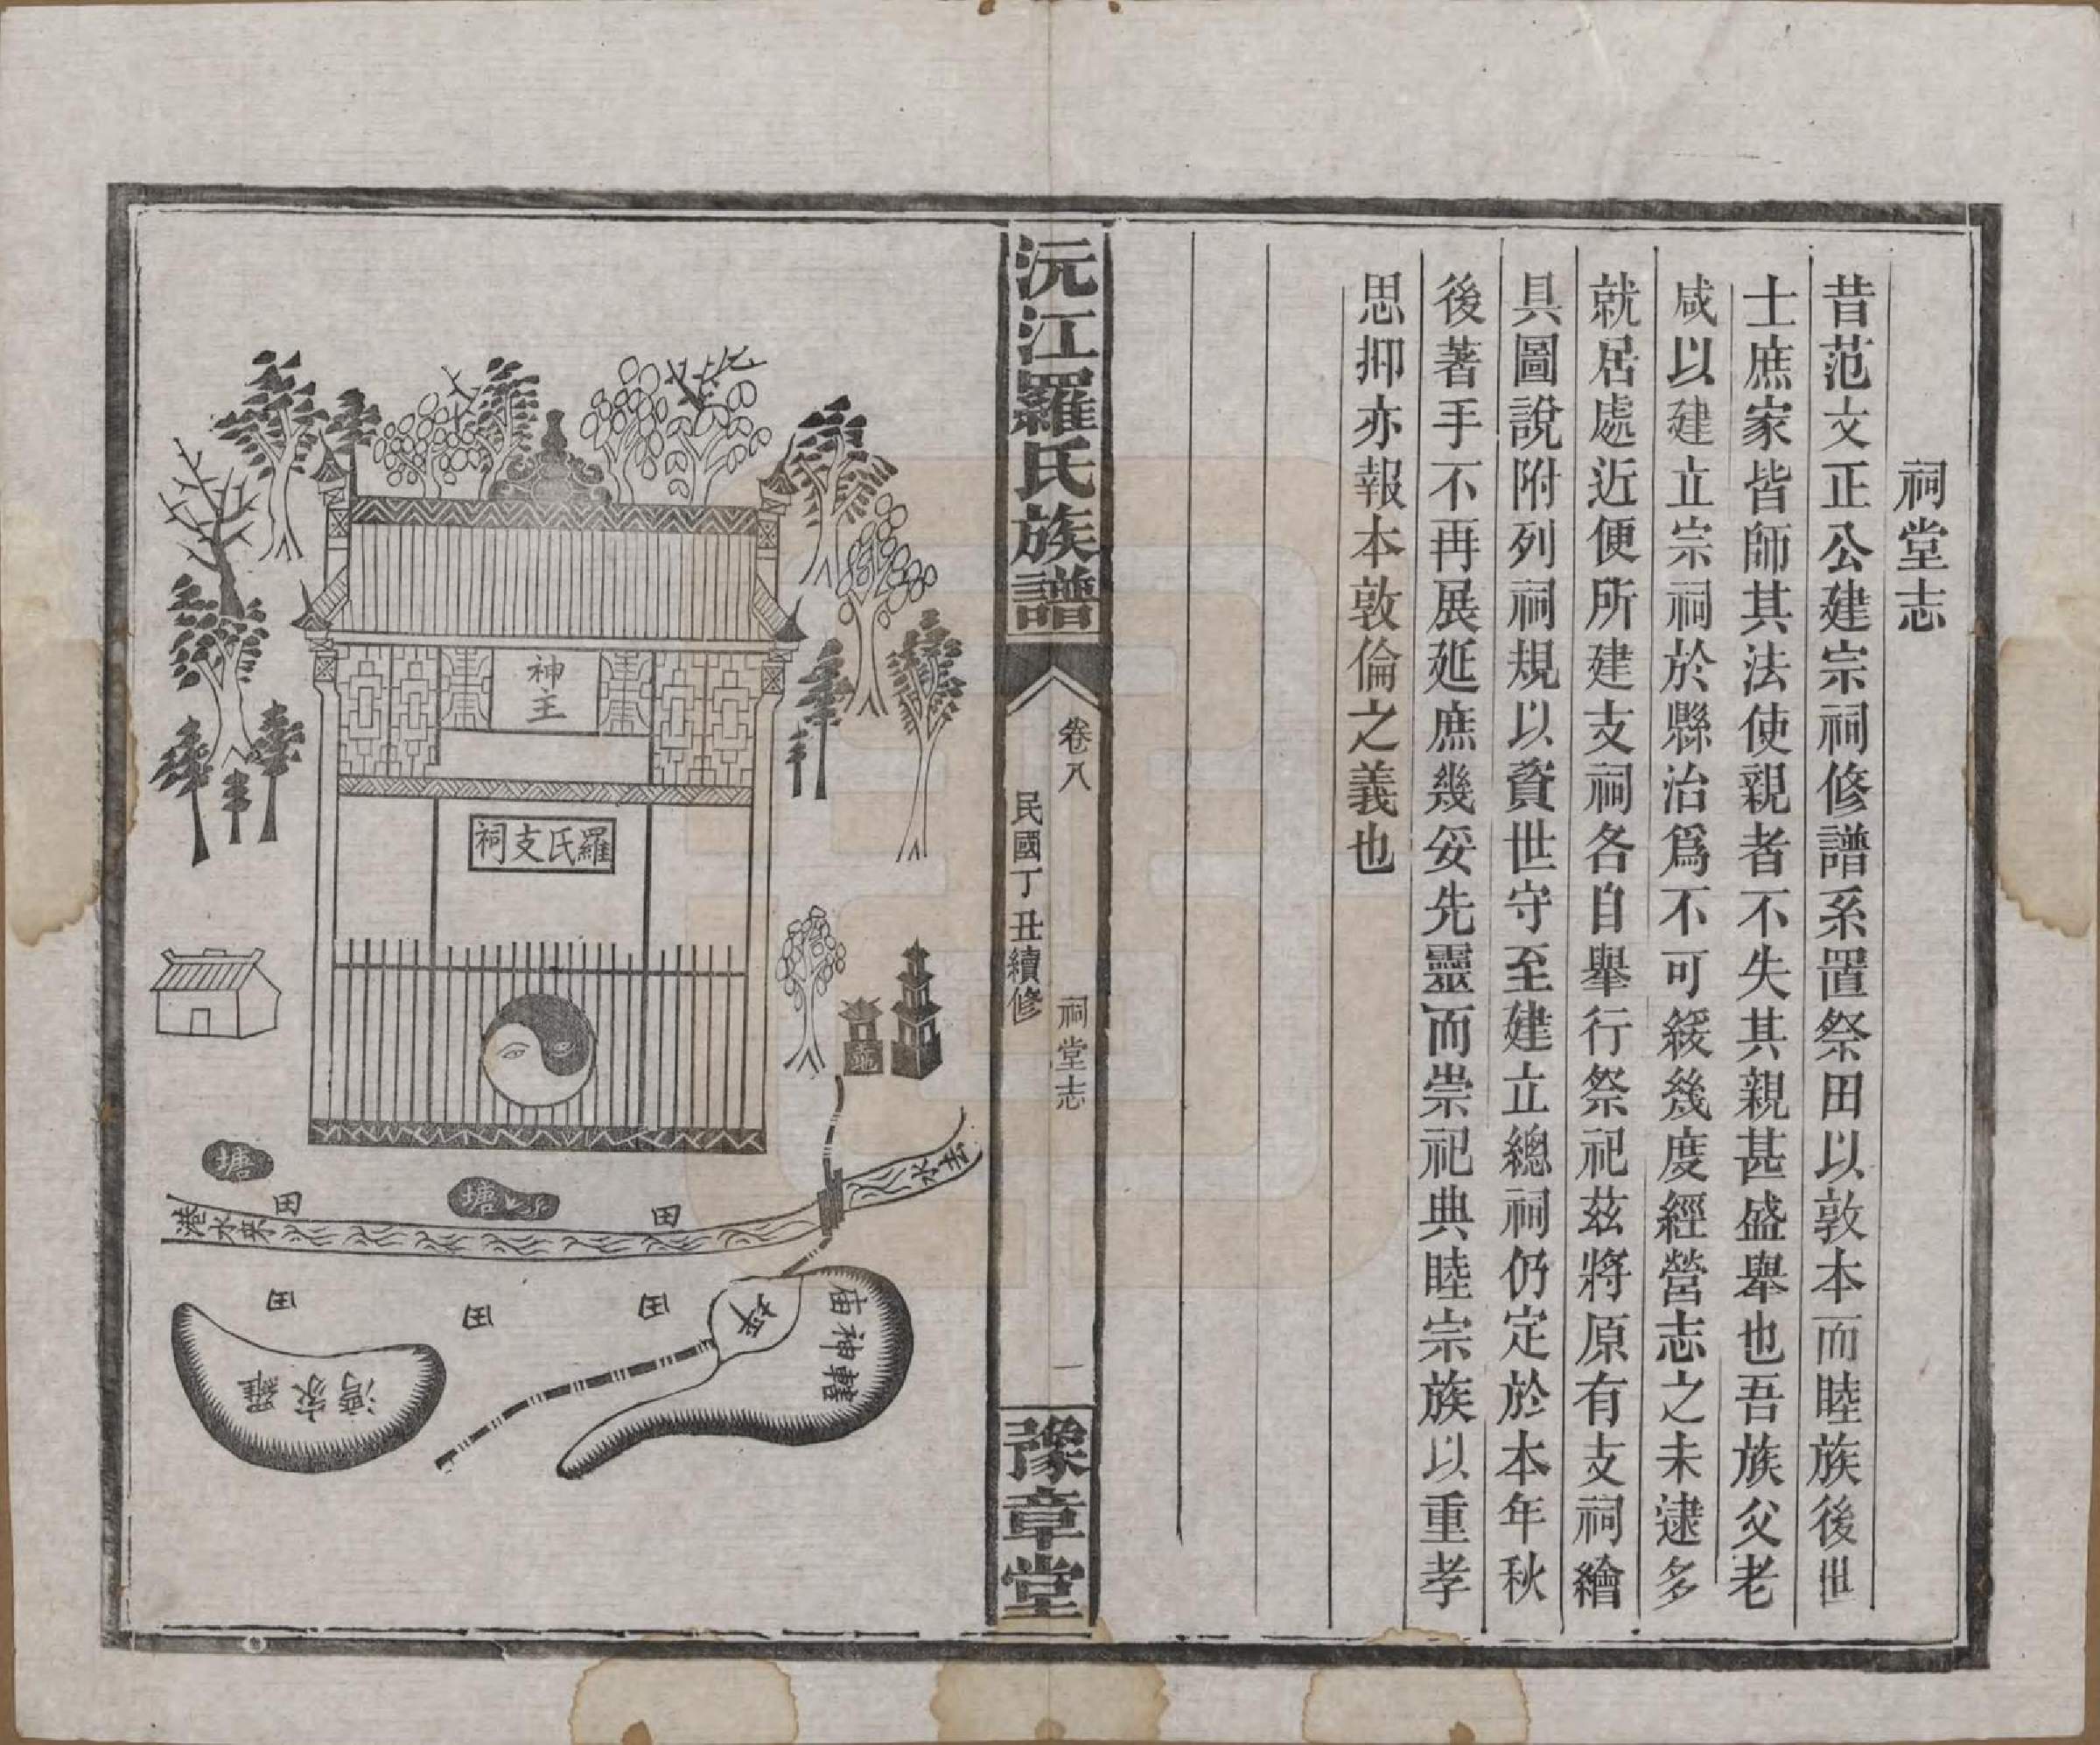 祠堂志
昔范文正公建宗祠修譜系置祭田以敦本而睦族後世
士庶家皆師其法使親者不失其親甚盛舉也吾族父老
咸以建立宗祠於縣治爲不可緩幾度經營志之未逮多
就居處近便所建支祠各自舉行祭祀茲將原有支祠繪
具圖說附列祠規以資世守至建立總祠仍定於本年秋
後著手不再展延庶幾妥先靈而崇祀典睦宗族以重孝
思抑亦報本敦倫之義也
沅江羅氏族譜
卷八
祠堂志
一
民國丁丑續修
豫章堂
神主
羅氏支祠
塘
塘
田
田
水
港水來
田
田
田
坪
廟神轄
羅家灣